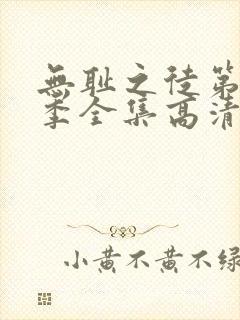 無耻之徒第
季全集高清
小黄不黄不绿